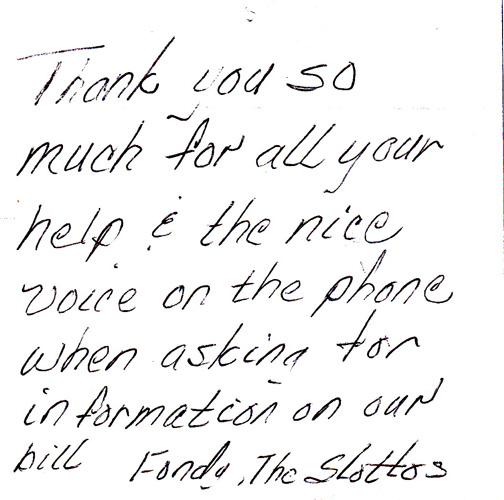 Thank you so
much for all your
help & the nice
voice on the phone
when asking for
information on our
bill Fondly, The Slottos